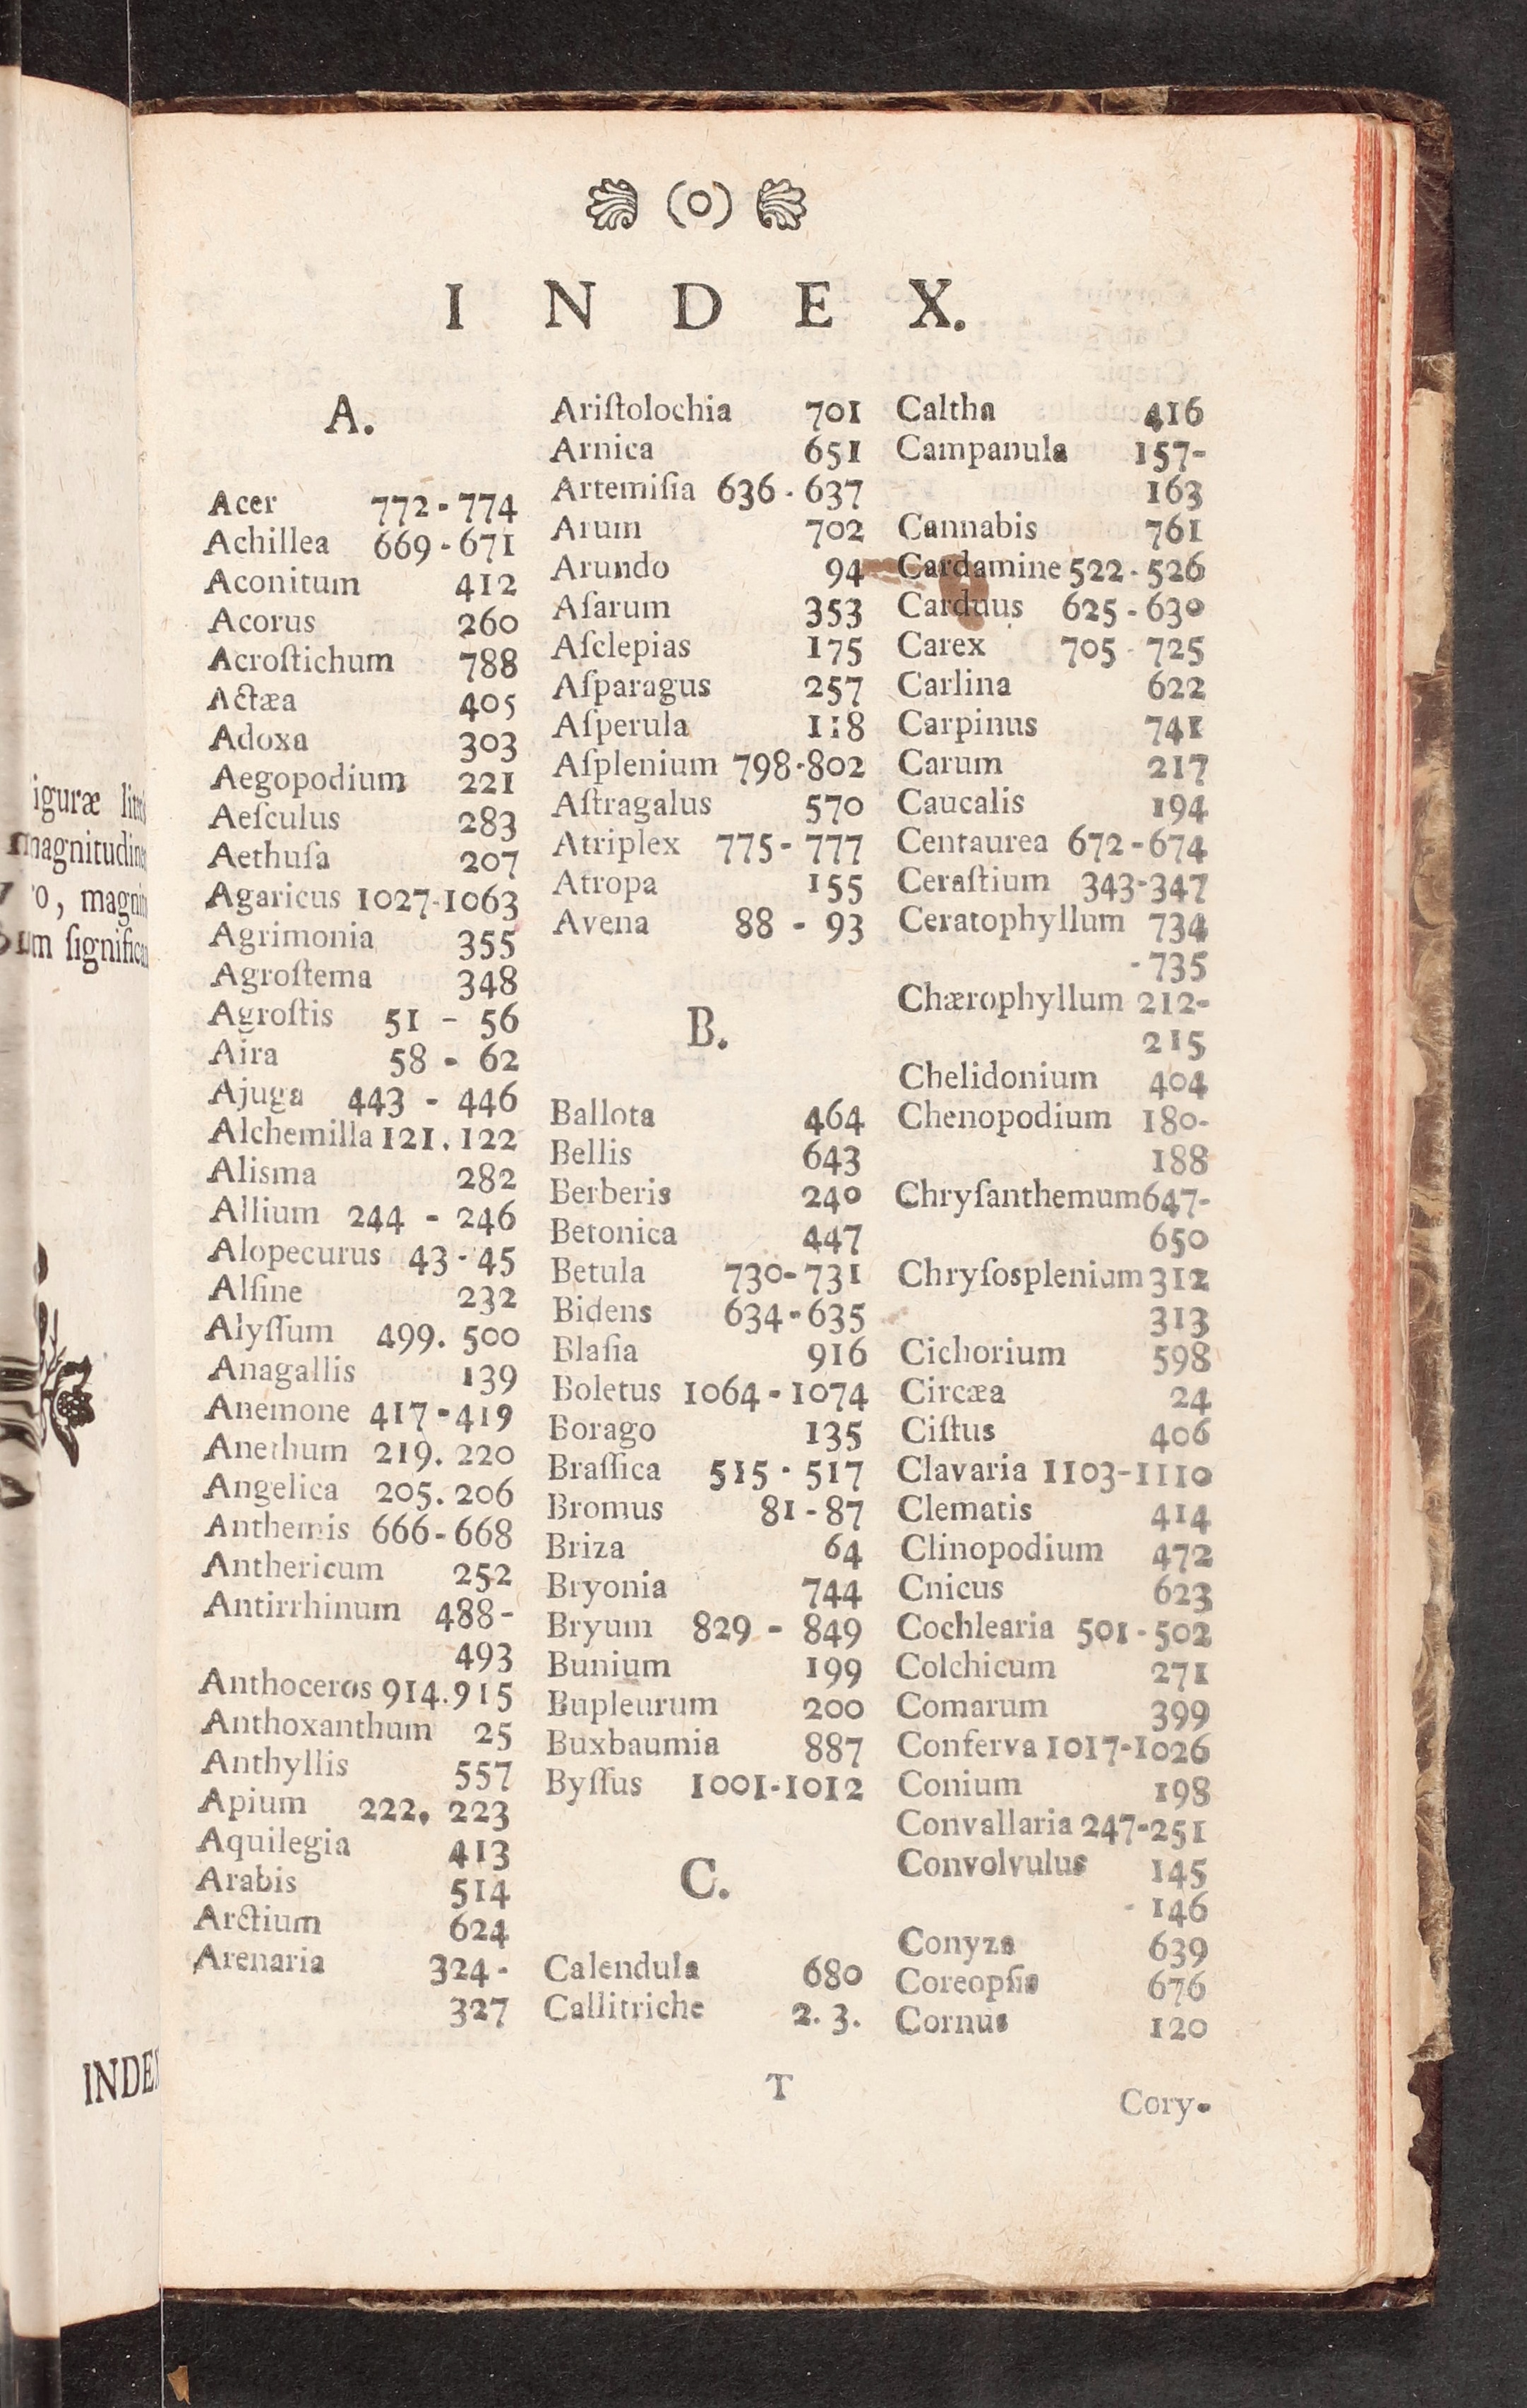 (o)
INDEX.
A.
Acer 772-774
Achillea 669-671
Aconitum 412
Acorus 260
Acroſtichum 788
Actæa 405
Adoxa 303
Aegopodium 221
Aeſculus 283
Aethuſa 207
Agaricus 1027-1063
Agrimonia 355
Agroſtema 348
Agroſtis 51 - 56
Aira 58 - 62
Ajuga 443 - 446
Alchemilla 121. 122
Alisma 282
Allium 244 - 246
Alopecurus 43-45
Alſine 232
Alyſſum 499. 500
Anagallis 139
Anemone 417-419
Anethum 219. 220
Angelica 205. 206
Anthemis 666-668
Anthericum 252
Antirrhinum 488-
493
Anthoceros 914.915
Anthoxanthum 25
Anthyllis 557
Apium 222. 223
Aquilegia 413
Arabis 514
Arctium 624
Arenaria 324-
327
Ariſtolochia 701
Arnica 651
Artemiſia 636-637
Arum 702
Arundo 94
Aſarum 353
Aſclepias 175
Aſparagus 257
Aſperula 118
Aſplenium 798-802
Aſtragalus 570
Atriplex 775-777
Atropa 155
Avena 88 - 93
B.
Ballota 464
Bellis 643
Berberis 240
Betonica 447
Betula 730-731
Bidens 634-635
Blaſia 916
Boletus 1064-1074
Borago 135
Braſſica 515-517
Bromus 81-87
Briza 64
Bryonia 744
Bryum 829 - 849
Bunium 199
Bupleurum 200
Buxbaumia 887
Byſſus 1001-1012
C.
Calendula 680
Callitriche 2. 3.
Caltha 416
Campanula 157-
163
Cannabis 761
Cardamine 522-526
Carduus 625-630
Carex 705-725
Carlina 622
Carpinus 741
Carum 217
Caucalis 194
Centaurea 672-674
Ceraſtium 343-347
Ceratophyllum 734
-735
Chærophyllum 212-
215
Chelidonium 404
Chenopodium 180-
188
Chryſanthemum 647-
650
Chryſosplenium 312
313
Cichorium 598
Circæa 24
Ciſtus 406
Clavaria 1103-1110
Clematis 414
Clinopodium 472
Cnicus 623
Cochlearia 501-502
Colchicum 271
Comarum 399
Conferva 1017-1026
Conium 198
Convallaria 247-251
Convolvulus 145
- 146
Conyza 639
Coreopſis 676
Cornus 120
T
Cory-